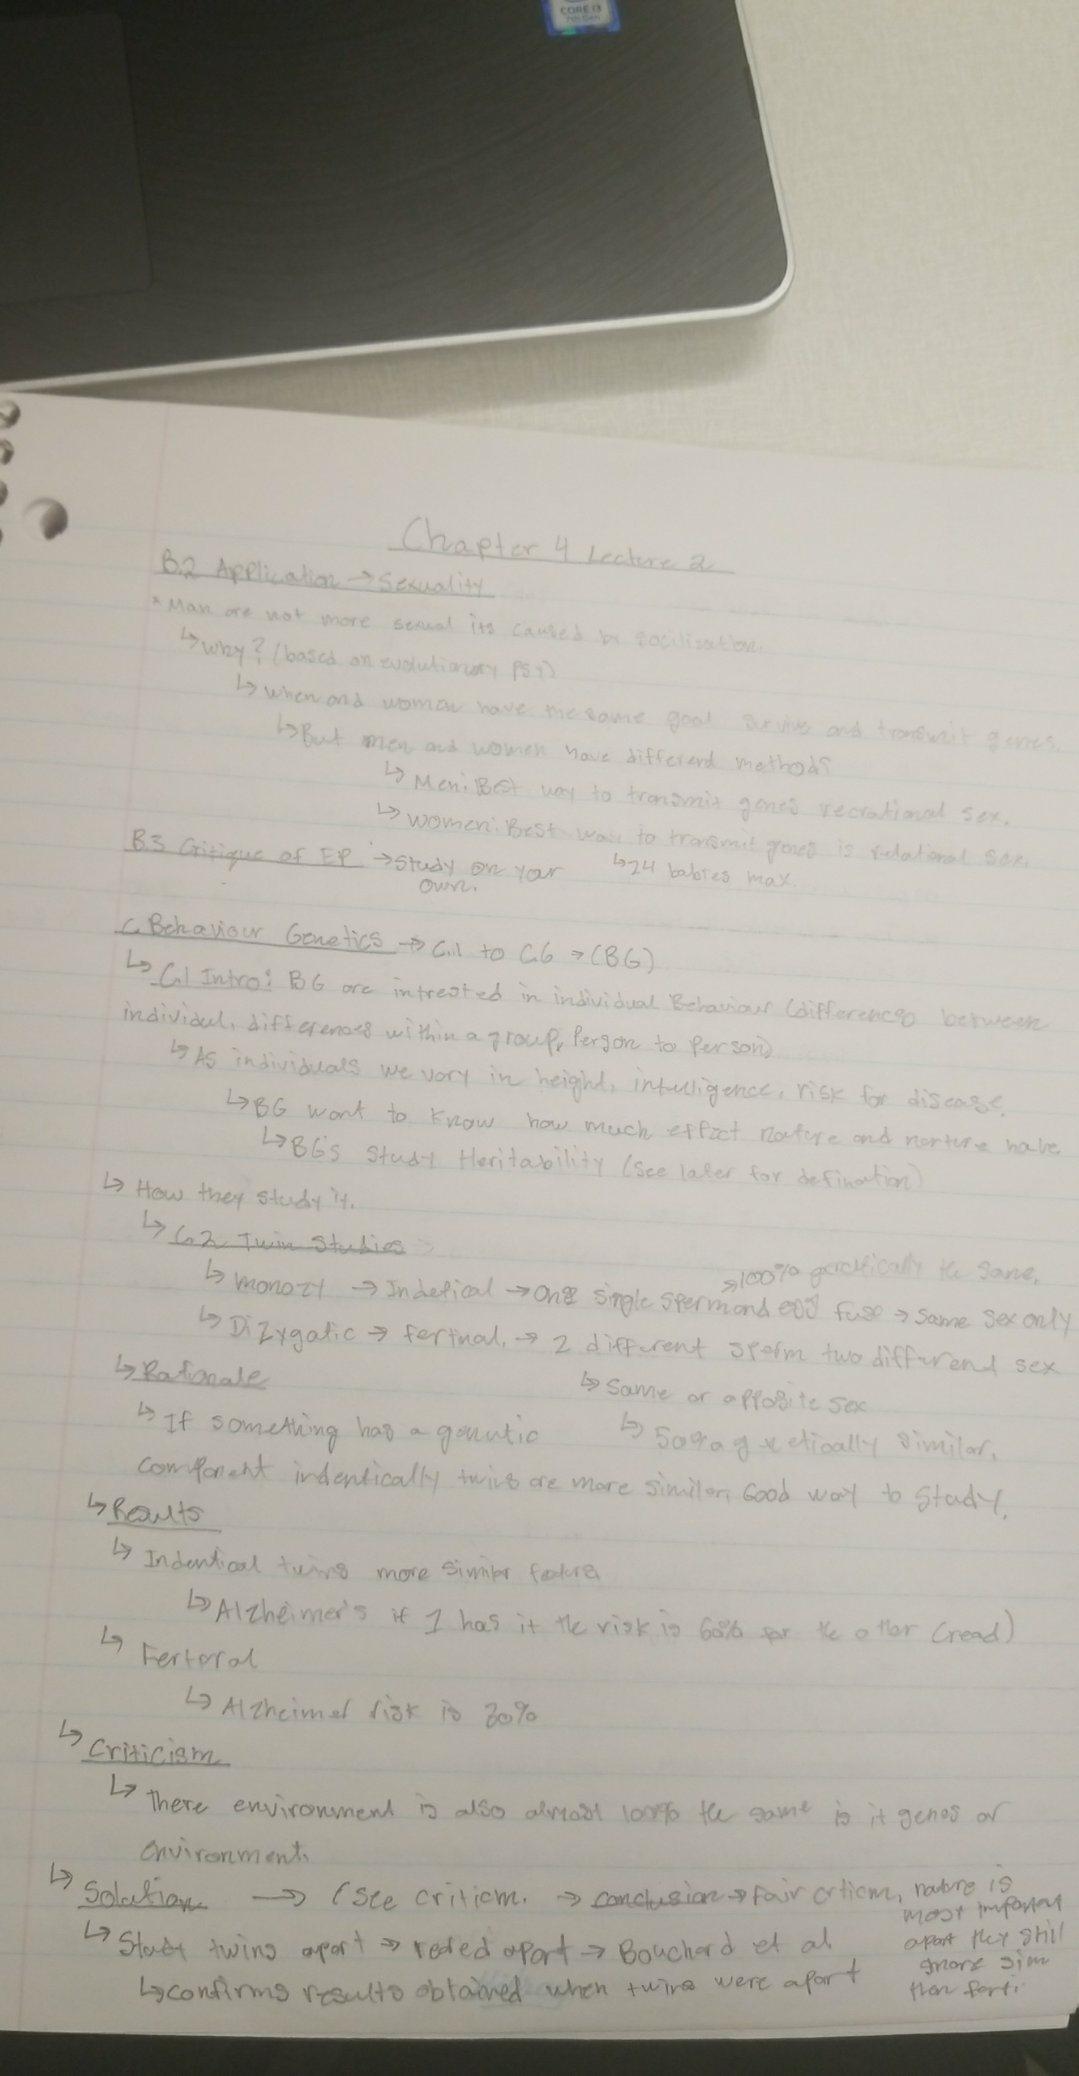 CORE i3
7th Gen
Chapter 4 Lecture 2
B.2 Application → Sexuality
* Man are not more sexual its caused by socilisation.
↳ why? (based on evolutionary psy)
↳ when and woman have the same goal survive and transmit genes.
↳ But men and women have differend methods
↳ Men: Best way to transmit genes recrational sex.
↳ women: Best way to transmit genes is relational sex.
B.3 Critique of EP → Study on your own.
↳ 24 babies max.
C. Behaviour Genetics → C.1 to C6 → (BG)
↳ C.1 Intro: BG are intrested in individual Behaviour (differences between
individul, differences within a group, Person to Person)
↳ As individuals we vary in height, intelligence, risk for disease.
↳ BG want to know how much effect nature and norture have
↳ BG's Study Heritability (see later for defination)
↳ How they study it.
↳ C.2 Twin Studies
↳ monozy → Indetical → One single sperm and egg fuse → Same sex only
→ 100% genetically the same.
↳ Dizygatic → → 2 different sperm two differend sex
↳ Same or opposite sex
↳ Rationale
↳ If something has a genutic
↳ 50% similar.
component indentically twins are more similar, Good way to Study.
↳ Results
↳ Indentical twins more similar
↳ Alzheimer's if 1 has it the risk is 60% for the other (read)
↳ Fertoral
↳ Alzheimer risk is 30%
↳ Criticism
↳ there environment is also almost 100% the same is it genes or
environment.
↳ Solution → (See criticm. → conclusion → Fair crticm, nature is
most important
apart they still
more sim
then
↳ Study twins apart → reded apart → Bouchard et al
↳ confirms results obtained when twins were apart